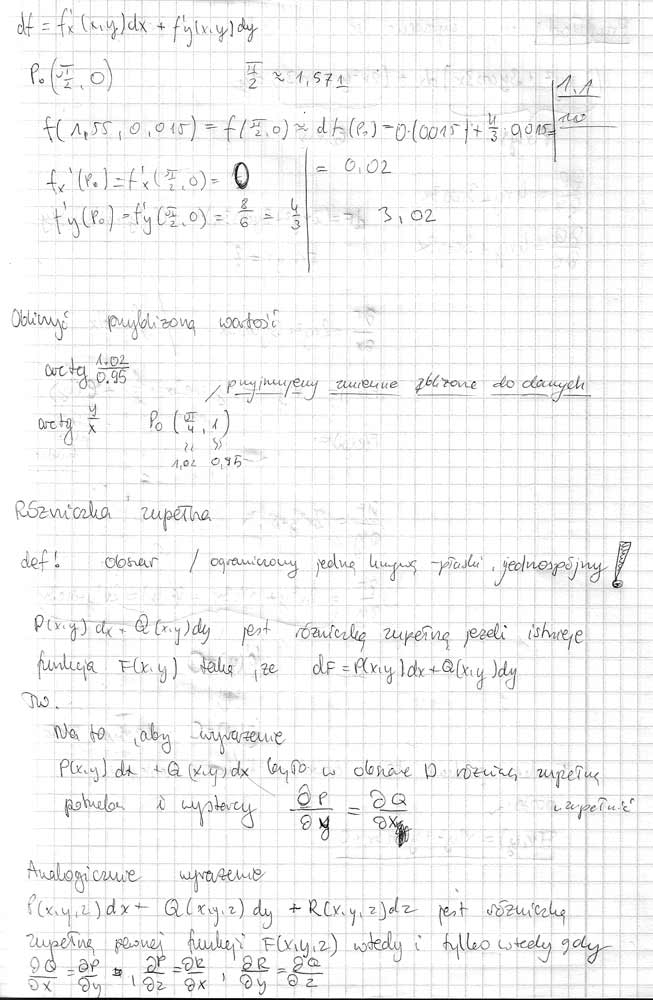 df = f'x(x,y)dx + f'y(x,y)dy
P₀(π/2, 0) π/2 ≈ 1,571
1,1
f(1,55, 0,015) = f(π/2, 0) ≈ df(P₀) = 0·(0,015) + 4/3 · 0,015 =
fx'(P₀) = f'x(π/2, 0) = 0 = 0,02
f'y(P₀) = f'y(π/2, 0) = 8/6 = 4/3 3,02
Obliczyć przybliżoną wartość
arctg 1.02/0.95
przyjmujemy zmienne zbliżone do danych
arctg y/x P₀(π/4, 1)
1,02 0,95
Różniczka zupełna
def! obszar / ograniczony jedną krzywą - płaski, jednospójny!
P(x,y)dx + Q(x,y)dy jest różniczką zupełną jeżeli istnieje
funkcja F(x,y) taka, że dF = P(x,y)dx + Q(x,y)dy
TW.
Na to, aby wyrażenie
P(x,y)dx + Q(x,y)dx było w obszarze D różnicą zupełną
potrzeba i wystarcza ∂P/∂y = ∂Q/∂x
Analogicznie wyrażenie
P(x,y,z)dx + Q(x,y,z)dy + R(x,y,z)dz jest różniczką
zupełną pewnej funkcji F(x,y,z) wtedy i tylko wtedy gdy
∂Q/∂x = ∂P/∂y, ∂P/∂z = ∂R/∂x, ∂R/∂y = ∂Q/∂z